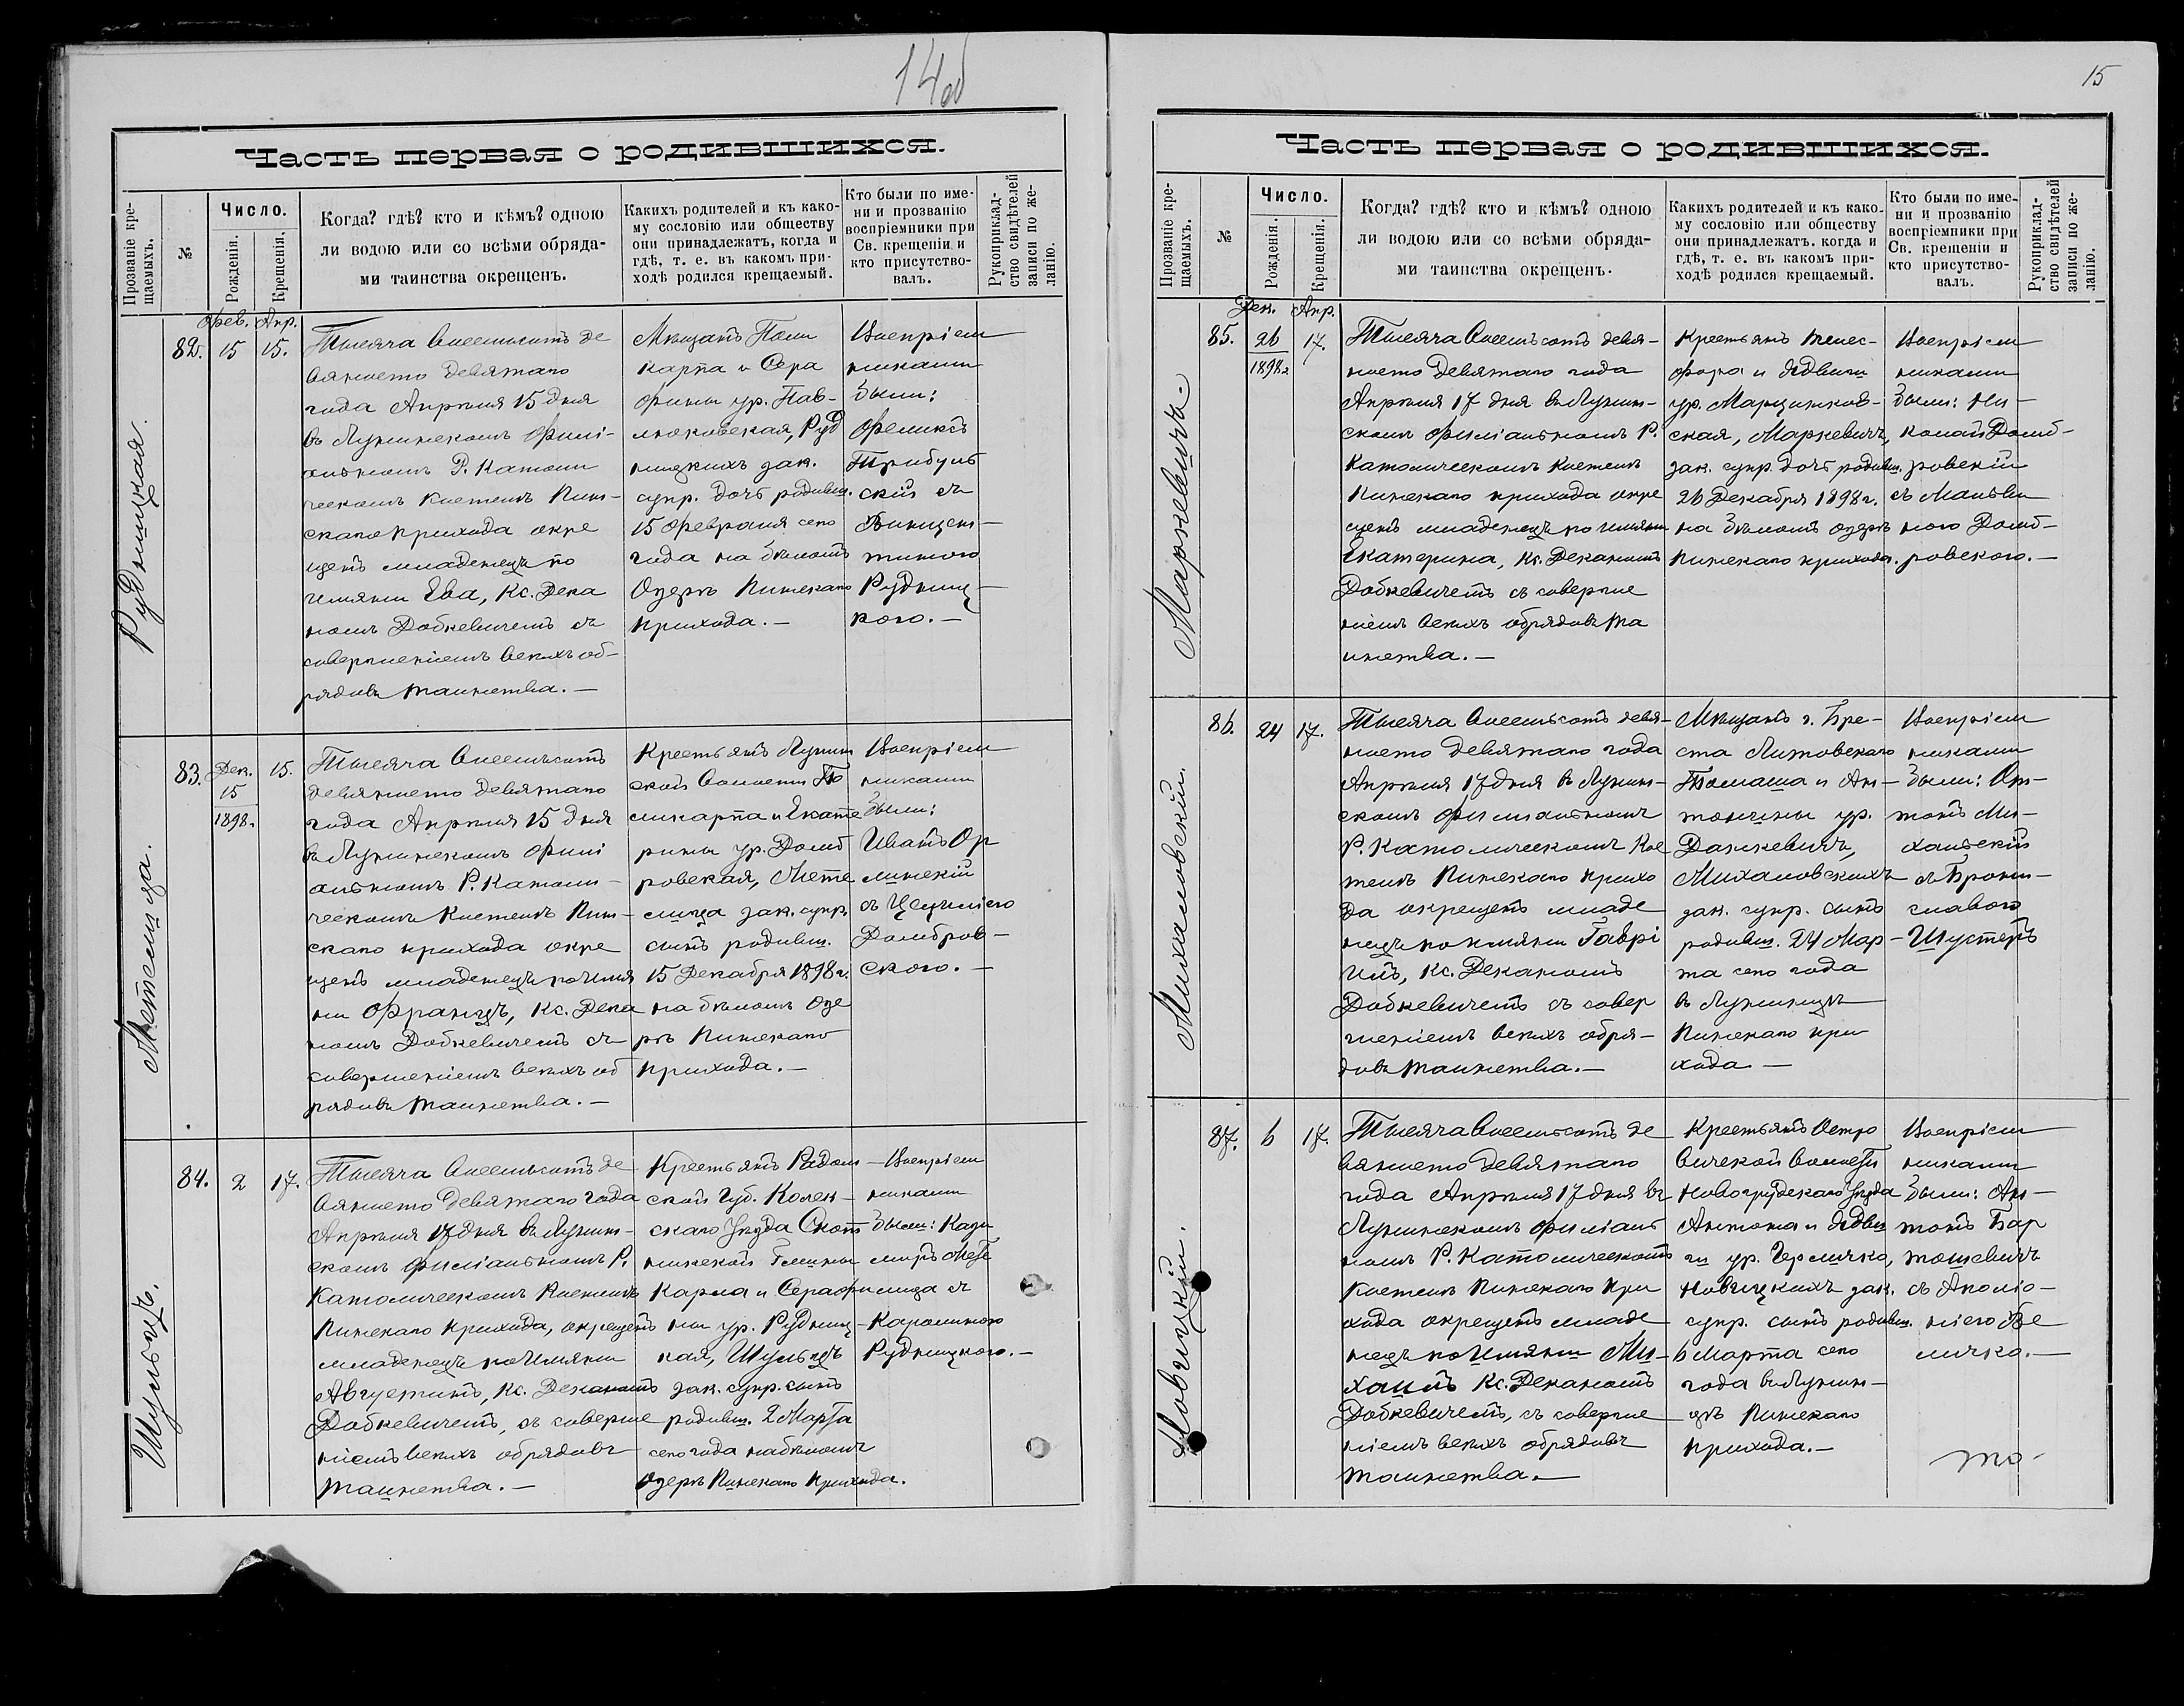 14об
Часть первая о родившихся.
Прозваніе кре-
щаемыхъ.
№
Число.
Рожденія.
Крещенія.
Когда? гдѣ? кто и кѣмъ? одною
ли водою или со всѣми обряда-
ми таинства окрещенъ.
Какихъ родителей и къ како-
му сословію или обществу
они принадлежатъ, когда и
гдѣ, т. е. въ какомъ при-
ходѣ родился крещаемый.
Кто были по име-
ни и прозванію
воспріемники при
Св. крещеніи и
кто присутство-
валъ.
Рукоприклад-
ство свидѣтелей
записи по же-
ланію.
Рудницкая.
82.
Фев. Апр.
15 15.
Тысяча восемьсотъ де
вяносто девятаго
года Апрѣля 15 дня
въ Лунинскомъ Филі-
альномъ Р. Католи
ческомъ Костелѣ Пин-
скаго прихода окре
щенъ младенецъ по
имяни Ева, Кс. Дека
номъ Добкевичемъ съ
совершеніемъ всѣхъ об-
рядовъ таинства. —
Мѣщанъ Поли
карпа и Сера
фимы ур. Пав-
люковская, Руд
ницкихъ зак.
супр. дочь родивш.
15 Февраля сего
года на бѣломъ
Озерѣ Пинскаго
прихода. —
Воспріем
никами
были:
Феликсъ
Трибуль
скій съ
Винцен-
тиною
Рудниц-
кого. —
Метелица.
83.
Дек.
15
1898.
15.
Тысяча восемьсотъ
девяносто девятаго
года Апрѣля 15 дня
въ Лунинскомъ Филі
альномъ Р. Католи-
ческомъ Костелѣ Пин-
скаго прихода окре
щенъ младенецъ по имя
ни Францъ, Кс. Дека
номъ Добкевичемъ съ
совершеніемъ всѣхъ об
рядовъ таинства. —
Крестьянъ Лунин
ской волости По
ликарпа и Екате
рины ур. Домб
ровская, Мете
лица зак. супр.
сынъ родивш.
15 Декабря 1898 г.
на бѣломъ Озе
рѣ Пинскаго
прихода. —
Воспріем
никами
были:
Иванъ Ор
линскій
съ Цециліею
Домбров-
ского. —
Шульцъ.
84.
2
17.
Тысяча восемьсотъ де
вяносто девятаго года
Апрѣля 17 дня въ Лунин-
скомъ Филіальномъ Р.
Католическомъ Костелѣ
Пинскаго прихода, окрещенъ
младенецъ по имяни
Августинъ, Кс. Деканомъ
Добкевичемъ, съ соверше
ніемъ всѣхъ обрядовъ
таинства. —
Крестьянъ Радом-
ской Губ. Козен-
скаго Уѣзда
Гмины
Карла и Серафи
мы ур. Рудниц-
кая, Шульцъ
зак. супр. сынъ
родивш. 2 Марта
сего года на бѣломъ
Озерѣ Пинскаго прихода.
Воспріем
никами
были: Кази
миръ Мете
лица съ
Каролиною
Рудницкого. —
15
Часть первая о родившихся.
Прозваніе кре-
щаемыхъ.
№
Число.
Рожденія.
Крещенія.
Когда? гдѣ? кто и кѣмъ? одною
ли водою или со всѣми обряда-
ми таинства окрещенъ.
Какихъ родителей и къ како-
му сословію или обществу
они принадлежатъ. когда и
гдѣ, т. е. въ какомъ при-
ходѣ родился крещаемый.
Кто были по име-
ни и прозванію
воспріемники при
Св. крещеніи и
кто присутство-
валъ.
Рукоприклад-
ство свидѣтелей
записи по же-
ланію.
Маркевичъ.
85.
Дек. Апр.
26
1898 г.
17.
Тысяча восемьсотъ девя-
носто девятаго года
Апрѣля 17 дня въ Лунин-
скомъ Филіальномъ Р.
Католическомъ Костелѣ
Пинскаго прихода окре
щенъ младенецъ по имяни
Екатерина, Кс. Деканомъ
Добкевичемъ съ соверше
ніемъ всѣхъ обрядовъ та
инства. —
Крестьянъ Телес-
фора и Ядвиги
ур. Марцинков-
ская, Маркевичъ,
зак. супр. дочь родивш.
26 Декабря 1898 г.
на бѣломъ озерѣ
Пинскаго прихода.
Воспріем
никами
были: Ни-
колай Домб-
ровскій
съ Мальви
ною Домб-
ровского. —
Михаловскій.
86.
24
17.
Тысяча восемьсотъ девя-
носто девятаго года
Апрѣля 17 дня въ Лунин-
скомъ Филиальномъ
Р. Католическомъ Кос
телѣ Пинскаго прихо
да окрещенъ младе
нецъ по имяни Гаврі
илъ, Кс. Деканомъ
Добкевичемъ съ совер
шеніемъ всѣхъ обря-
довъ таинства. —
Мѣщанъ г. Бре-
ста Литовскаго
Томаша и Ан-
тонины ур.
Данкевичъ,
Михаловскихъ
зак. супр. сынъ
родивш. 24 Мар-
та сего года
въ Лунинцѣ
Пинскаго при
хода —
Воспріем
никами
были: Ан-
тонъ Ми-
хальскій
съ Брони-
славою
Шустеръ
Новицкій.
87.
6
17.
Тысяча восемьсотъ де
вяносто девятаго
года Апрѣля 17 дня въ
Лунинскомъ Филіаль
номъ Р. Католическомъ
Костелѣ Пинскаго при
хода окрещенъ младе
нецъ по имяни Ми-
хаилъ Кс. Деканомъ
Добкевичемъ, съ соверше
ніемъ всѣхъ обрядовъ
таинства. —
Крестьянъ Остро
вичской волости
Новогрудскаго Уѣзда
Антона и Ядви
ги ур.
Новицкихъ зак.
супр. сынъ родивш.
6 Марта сего
года въ Лунин-
цѣ Пинскаго
прихода. —
Воспріем
никами
были: Ан-
тонъ Бар
тошевичъ
съ Аполіо-
ніею
личко. —
то-